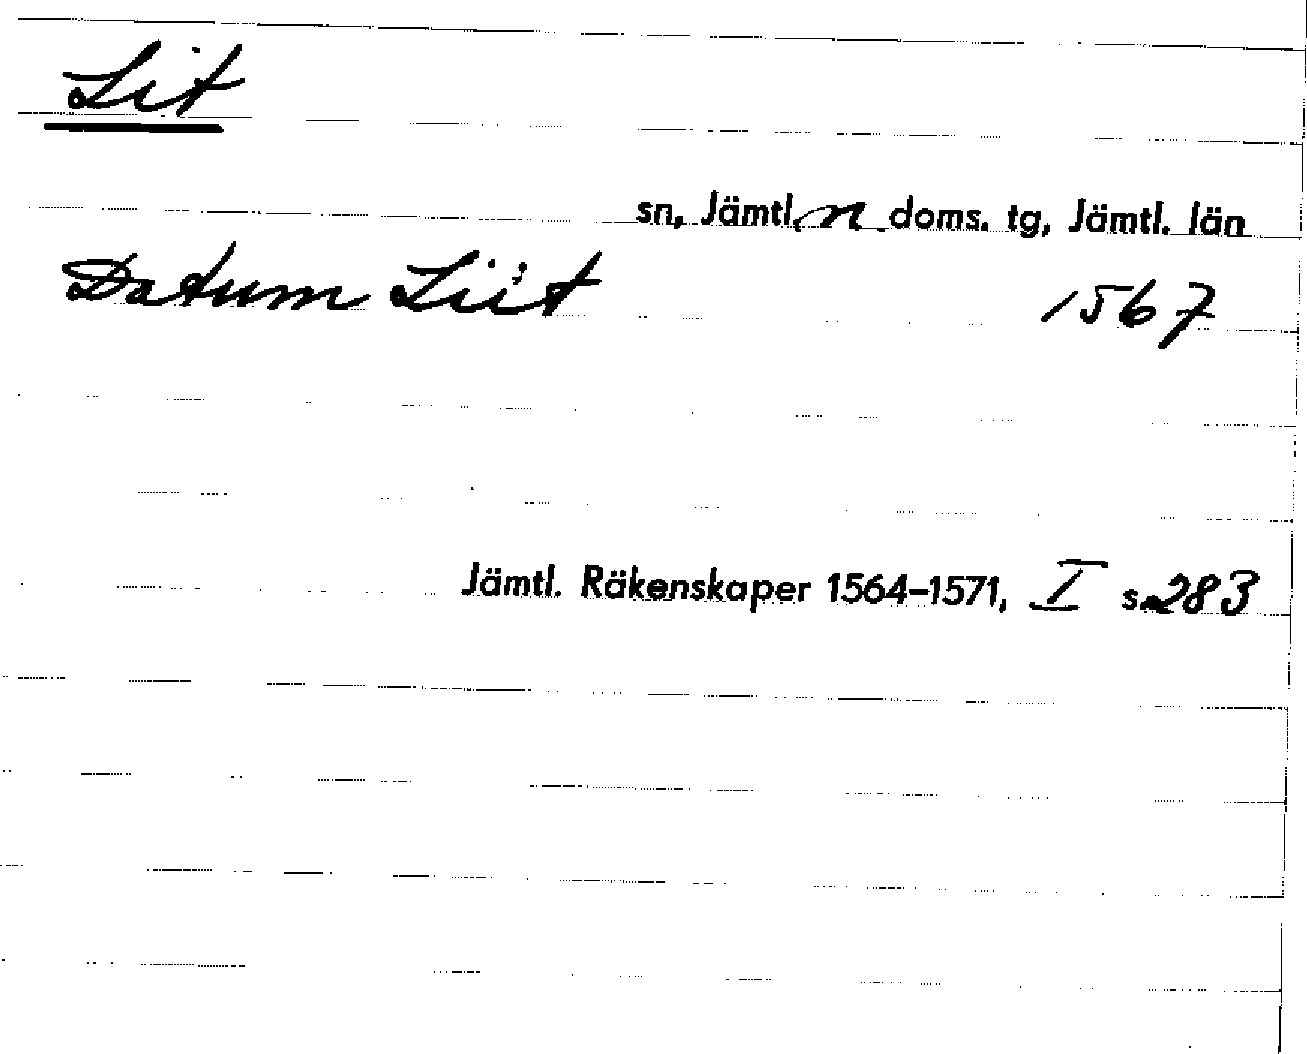 Lit
sn, Jämtl. n doms. tg, Jämtl. län
Datum Liit 1567
Jämtl. Räkenskaper 1564–1571, I s. 283